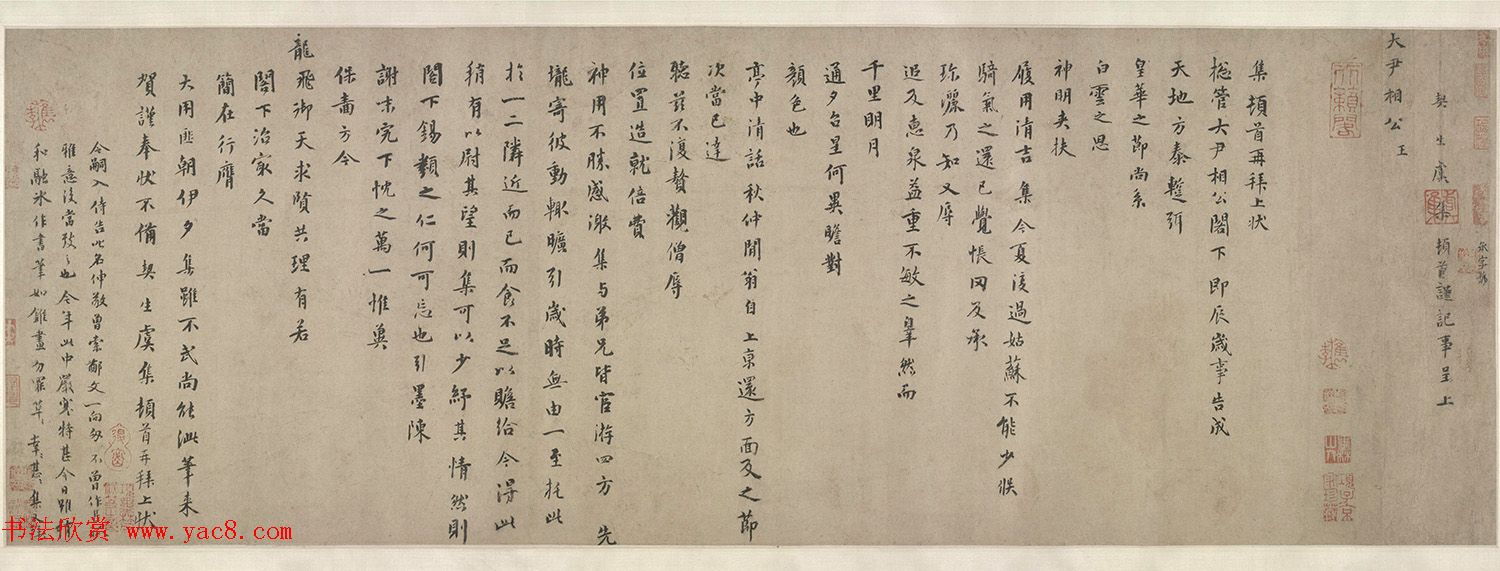 契生虞集頓首謹記事呈上
大尹相公
王
集頓首再拜上狀
捴管大尹相公閤下即辰歲事告成
天地方泰蹔弭
皇華之節尚系
白雲之思
神明夫扶
履用清吉集今夏湲過姑蘇不能少候
騎氣之還已覺悵罔及承
珎灑乃知又辱
追及惠泉益重不敏之辠然而
千里明月
通夕台星何異瞻對
顏色也
亭中清話秋仲閒翁自上京還方面及之節
次當已達
聽茲不復贅觀僧辱
位置造就倍費
神用不勝感激集與弟兄皆官游四方先
壠寄彼動輒曠引歲時無由一至托此
於一二隣近而已而食不足以贍給今淂此
稍有以尉其望則集可以少紓其情然則
閤下錫類之仁何可忘也引墨陳
謝未究下忱之萬一惟冀
保嗇方今
龍飛御天求賢共理有若
閤下治家久當
簡在行膺
大用匪朝伊夕集雖不武尚能泚筆來
賀謹奉狀不備契生虞集頓首再拜上狀
令嗣入侍告此名仲敬曾索鄙文一向匆不曾作
雅意後當致之也今年此中嚴寒特甚今日雖
和融氷作書筆如錐畫勿罪幸甚集
书法欣赏 www.yac8.com